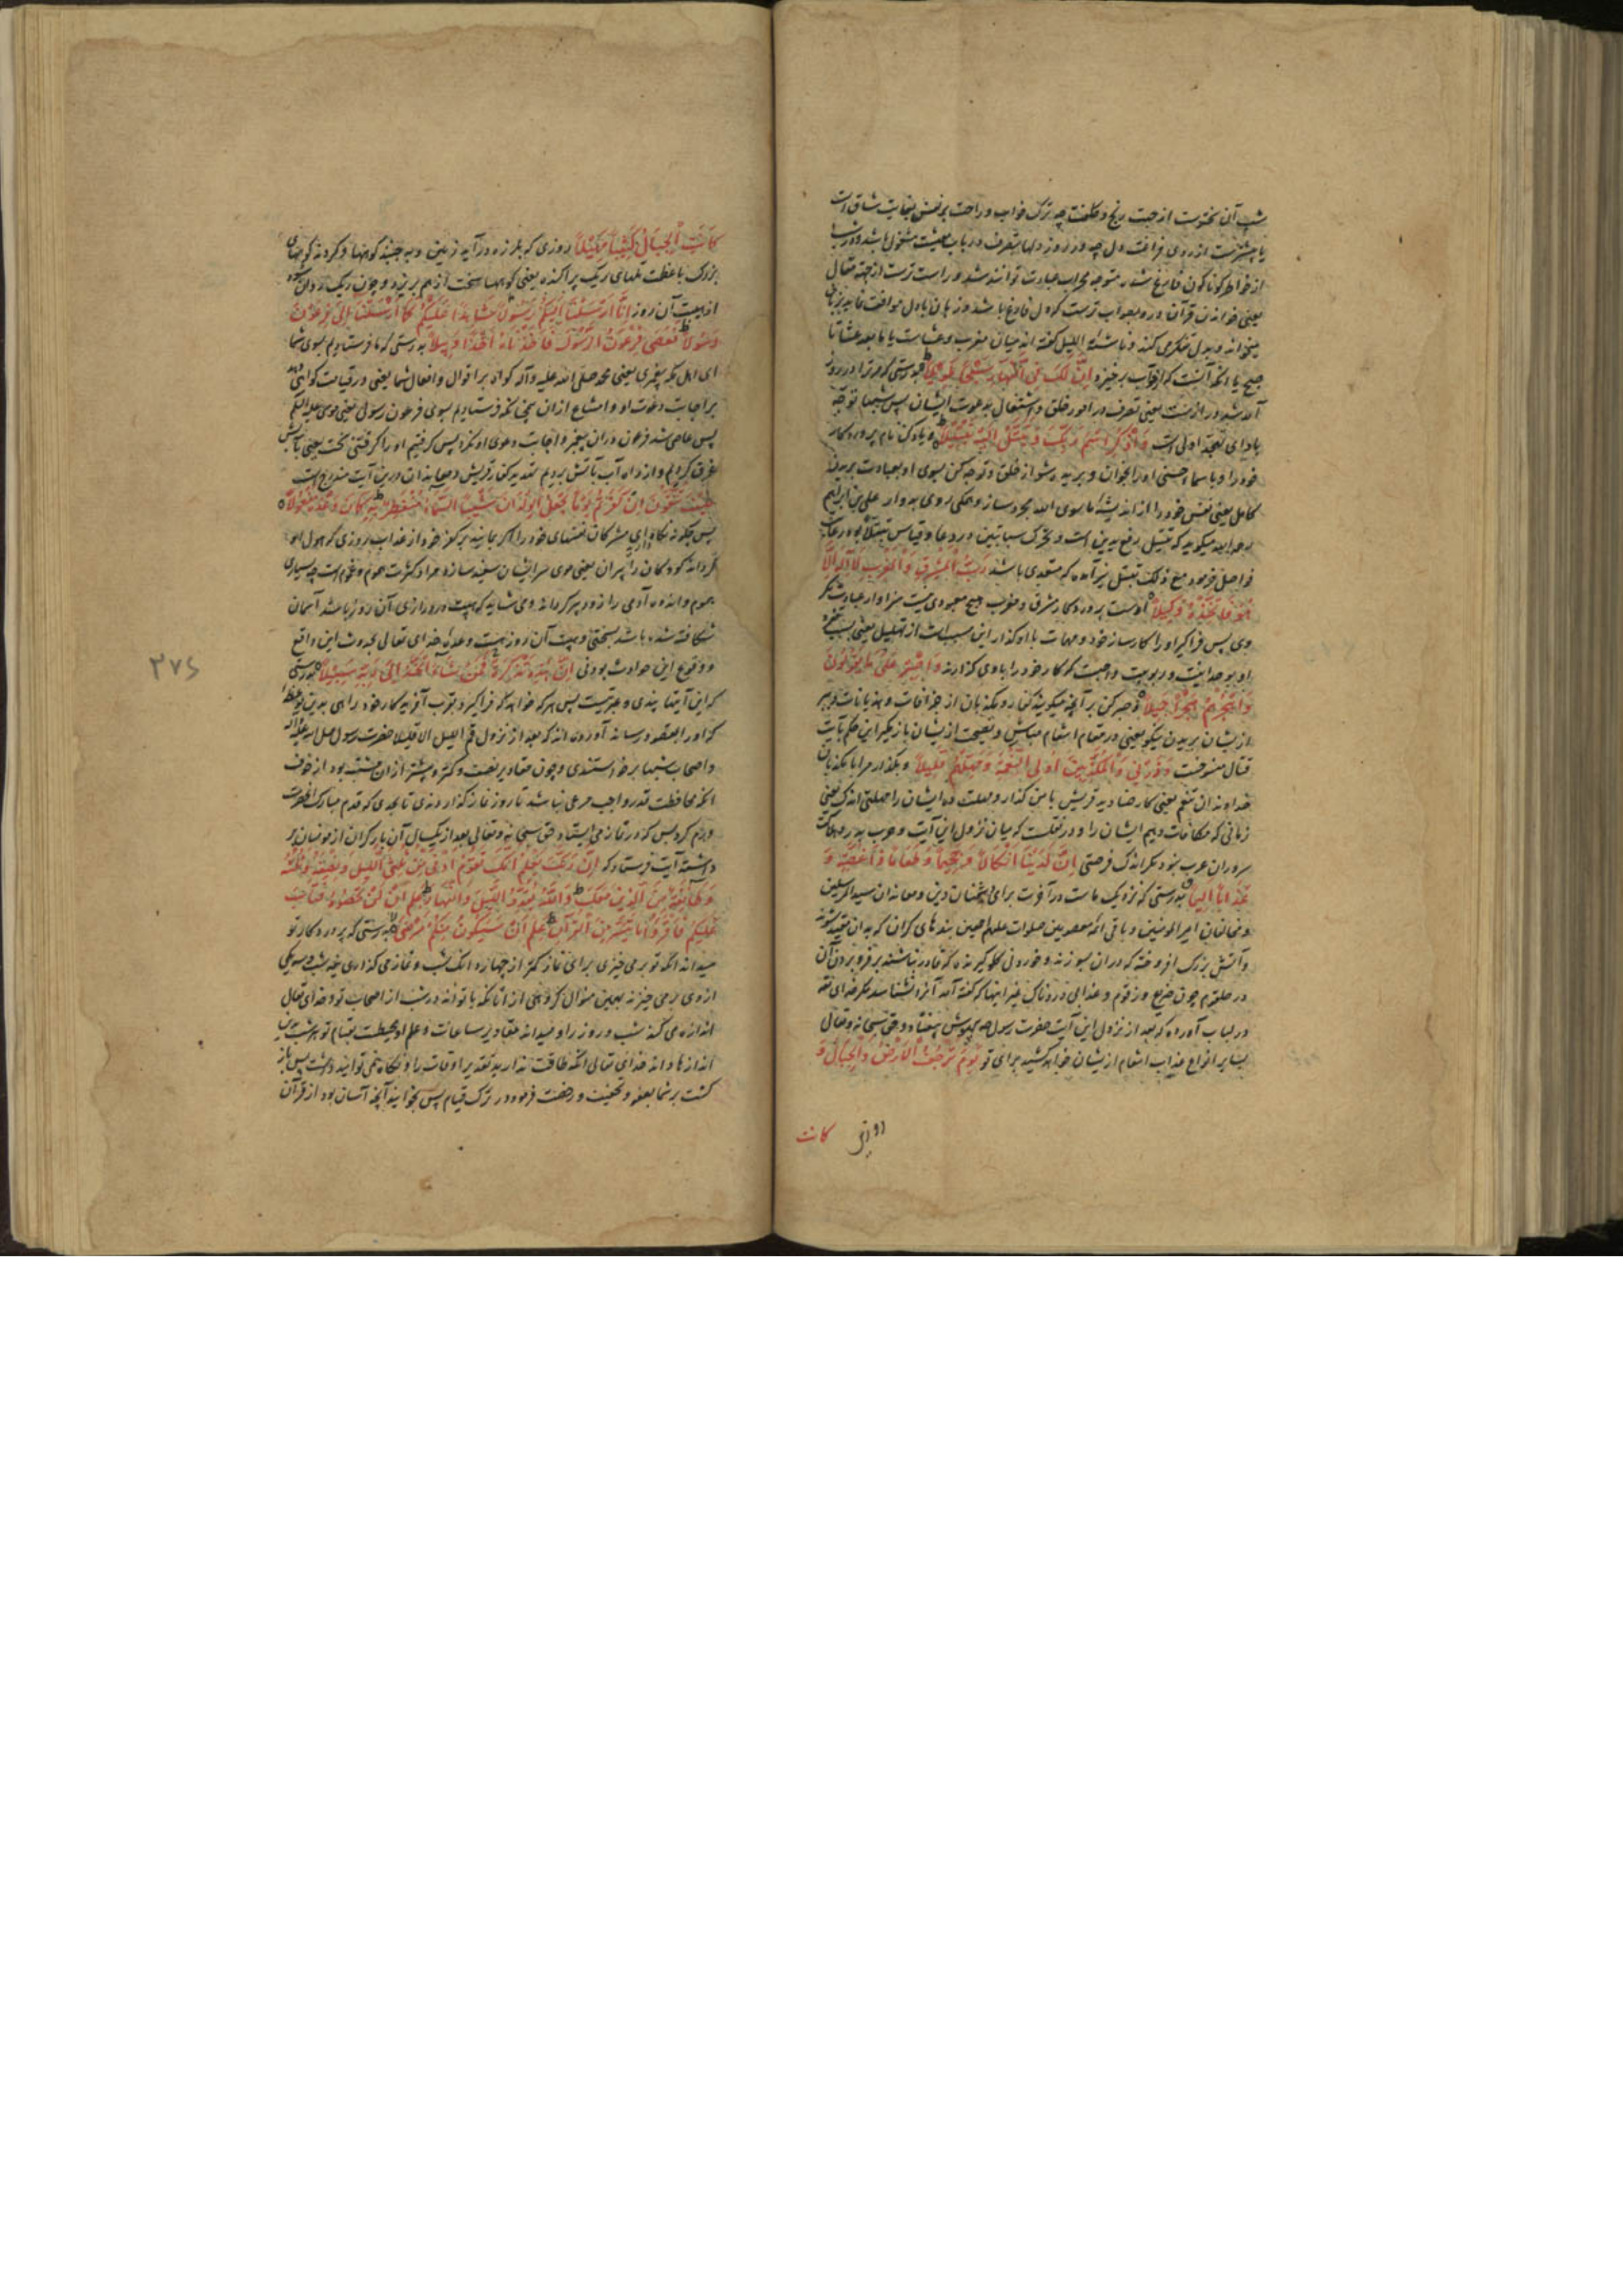 شب آن سخت‌ترست از جهت رنج و کلفت چه ترک خواب و راحت بر نفس بغایت شاق است
یا بیشترست از روی فراغت دل چه در روز دلها بتصرف در باب معیشت مشغول باشد و در شب
از خواطر کوناکون فارغ شده متوجه محراب عبادت تواند شد و راست ترست از جهة مقال
یعنی خواندن قرآن در و بصواب ترست که دل فارغ باشد و زبان با دل موافقت نماید بزبان
میخواند و بدل تفکر می کند و ناشئة اللیل کفته اند میان مغرب و عشاست یا ما بعد عشا تا
صبح یا آنکه آنست که از خواب برخیزد اِنَّ لَکَ فِی النَّهَارِ سَبْحًا طَوِیلًا بدرستی که مر ترا در روز
آمد شد دراز است یعنی تصرف در امور خلق و اشتغال بدعوت ایشان پس شبها توجه
بادای تهجد اولی است وَاذْکُرِ اسْمَ رَبِّکَ وَتَبَتَّلْ اِلَیْهِ تَبْتِیلًا و یاد کن نام پروردکار
خود را و باسماء حسنی او را بخوان و بریده شو از خلق و توجه کن بسوی او بعبادت بریدن
کامل یعنی نفس خود را از اندیشهٔ ما سوی الله مجرد ساز و همکی روی بدو آر علی بن ابراهیم
رحمه الله میکوید که تبتیل رفع یدین است و تحرک سبابتین در دعا و قیاس تبتلا بود رعایت
فواصل فرمود مع ذلک تبتل نیز آمده که متعدی باشد رَبُّ الْمَشْرِقِ وَالْمَغْرِبِ لَا اِلٰهَ اِلَّا
هُوَ فَاتَّخِذْهُ وَکِیلًا اوست پروردکار مشرق و مغرب هیچ معبودی نیست سزاوار عبادت مکر
وی پس فراکیر او را کارساز خود و مهمات با او کذار این مسبب است از تهلیل یعنی بسبب تفرد
او بوحدانیت و ربوبیت واجبست که کار خود را با وی کذارند وَاصْبِرْ عَلٰی مَا یَقُولُونَ
وَاهْجُرْهُمْ هَجْرًا جَمِیلًا و صبر کن بر آنچه میکویند کفار و مکذبان از خرافات و هذیانات و ببر
از یشان بریدن نیکو یعنی در مقام انتقام مباش و نصیحت از یشان بازمکیر این حکم بآیت
قتال منسوخست وَذَرْنِی وَالْمُکَذِّبِینَ اُولِی النَّعْمَةِ وَمَهِّلْهُمْ قَلِیلًا و بکذار مرا با مکذبان
خداوندان تنعم یعنی کار صنادید قریش با من کذار و مهلت ده ایشان را مهلتی اندک یعنی
زمانی که مکافات دهیم ایشان را و در نقلست که میان نزول این آیت و حرب بدر و هلاکت
سروران عرب نبود مکر اندک فرصتی اِنَّ لَدَیْنَا اَنْکَالًا وَجَحِیمًا وَطَعَامًا ذَا غُصَّةٍ وَ
عَذَابًا اَلِیمًا بدرستی که نزدیک ماست در آخرت برای دشمنان دین و معاندان سید المرسلین
و مخالفان امیر المومنین و باقی ائمه معصومین صلوات علیهم اجمعین بندهای کران که بدان مقید شوند
و آتش بزرک افروخته که دران بسوزند و خوردنی کلوکیرنده که قادر نباشند بر فرو بردن آن
در حلقوم چون ضریع و زقوم و عذابی دردناک غیر اینها که کفته آمد آنرا نشناسد مکر خدای تعالی
در لباب آورده که بعد از نزول این آیت حضرت رسول صلعم بیهوش بیفتاد و حق سبحانه و تعالی
بسایر انواع عذاب انتقام از یشان خواهد کشید برای تو یَوْمَ تَرْجُفُ الْاَرْضُ وَالْجِبَالُ وَ
کانت
کَانَتِ الْجِبَالُ کَثِیبًا مَهِیلًا روزی که بلرزه درآید زمین و بجنبند کوهها و کردند کوههای
بزرک با عظمت تلهای ریک پراکنده یعنی کوهها سخت از هم بریزد و چون ریک روان شود
از هیبت آن روز اِنَّا اَرْسَلْنَا اِلَیْکُمْ رَسُولًا شَاهِدًا عَلَیْکُمْ کَمَا اَرْسَلْنَا اِلٰی فِرْعَوْنَ
رَسُولًا فَعَصٰی فِرْعَوْنُ الرَّسُولَ فَاَخَذْنَاهُ اَخْذًا وَبِیلًا بدرستی که ما فرستادیم بسوی شما
ای اهل مکه پیغمبری یعنی محمد صلی الله علیه و آله کواه بر اقوال و افعال شما یعنی در قیامت کواهی دهد
بر اجابت دعوت او و امتناع از ان همچنانکه فرستادیم بسوی فرعون رسولی یعنی موسی علیه السلم
پس عاصی شد فرعون دران پیغمبر و اجابت دعوی او نکرد پس کرفتیم او را کرفتنی سخت یعنی بآبش
غرق کردیم و از راه آب بآتش بردیم تهدید کفار قریش و معاندان درین آیت مندرج است
فَکَیْفَ تَتَّقُونَ اِنْ کَفَرْتُمْ یَوْمًا یَجْعَلُ الْوِلْدَانَ شِیبًا السَّمَاءُ مُنْفَطِرٌ بِهِ کَانَ وَعْدُهُ مَفْعُولًا
پس چکونه نکاه دارید ای مشرکان نفسهای خود را اکر بمانید بر کفر خود از عذاب روزی که هول او
کرداند کودکان را پیران یعنی موی سر ایشان سفید سازد مراد کثرت هموم و غموم است چه بسیاری
هموم و اندوه آدمی را زود پیر کرداند و می شاید که هیبت و درازی آن روز باشد آسمان
شکافته شده باشد بسختی و هیبت آن روز هست وعدهٔ خدای تعالی بحدوث این واقع
و وقوع این حوادث بودنی اِنَّ هٰذِهِ تَذْکِرَةٌ فَمَنْ شَاءَ اتَّخَذَ اِلٰی رَبِّهِ سَبِیلًا بدرستی
که این آیتها پندی و عبرتیست پس هر که خواهد که فراکیرد بقرب آفریدکار خود راهی بدین موعظه
که او را بمقصود رساند آورده اند که بعد از نزول قم اللیل الا قلیلا حضرت رسول صلی الله علیه و آله
و اصحاب شبها برخاستندی و چون مقادیر نصف و کمتر و بیشتر از ان مشتبه بود از خوف
آنکه محافظت قدر واجب مرعی نباشد تا روز نماز کذاردندی تا بحدی که قدم مبارک آنحضرت
ورم کرد پس که در نماز می ایستاد حق سبحانه و تعالی بعد از یکسال آن بار کران از مومنان بر
داشته آیت فرستاد که اِنَّ رَبَّکَ یَعْلَمُ اَنَّکَ تَقُومُ اَدْنٰی مِنْ ثُلُثَیِ اللَّیْلِ وَنِصْفَهُ وَثُلُثَهُ
وَطَائِفَةٌ مِنَ الَّذِینَ مَعَکَ وَاللّٰهُ یُقَدِّرُ اللَّیْلَ وَالنَّهَارَ عَلِمَ اَنْ لَنْ تُحْصُوهُ فَتَابَ
عَلَیْکُمْ فَاقْرَؤُا مَا تَیَسَّرَ مِنَ الْقُرْآنِ عَلِمَ اَنْ سَیَکُونُ مِنْکُمْ مَرْضٰی بدرستی که پروردکار تو
میداند آنکه تو برمی خیزی برای نماز کمتر از چهار دانک شب و نماز می کذاری نیمه شب و سه یکی
از وی برمی خیزند بهمین منوال کروهی از آنانکه با تو اند در شب از اصحاب تو و خدای تعالی
اندازه می کند شب و روز را و میداند مقادیر ساعات و علم او محیطست بقیام تو هر شب بدین
اندازها داند خدای تعالی آنکه طاقت ندارید تقدیر اوقات را و نکاه نمی توانید داشت پس باز
کشت بر شما بعفو و تخفیف و رخصت فرمود در ترک قیام پس بخوانید آنچه آسان بود از قرآن
۳۷۶